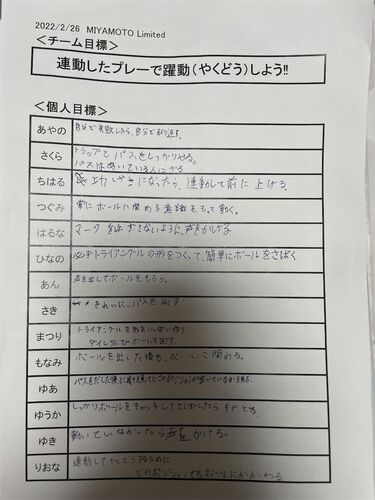 2022/2/26 MIYAMOTO Limited
＜チーム目標＞
連動したプレーで躍動（やくどう）しよう!!
＜個人目標＞
あやの 自分で失敗したら、自分で取り返す。
さくら トラップとパスをしっかりやる。
パスはあいている人にさる
ちはる 守になったら、連動して前に上げる。
つぐみ 常にボールに関わる意識をもって動く。
はるな マークをはずさないように、声をかける
ひなの 必ずトライアングルの形をつくって、簡単にボールをさばく
あん 声を出してボールをもらう。
さき きれいに、パスを回す
まつり トライアングルを
ダイレクトでボールを回す。
もなみ ボールを出した後も、ボールに関わる。
ゆあ パスをだした後に
ゆうか しっかりボールをキャッチして
ゆき 動いていなかったら声をかける。
りおな 連動してやくどうするために、
どのポジションでもボールにかかわる